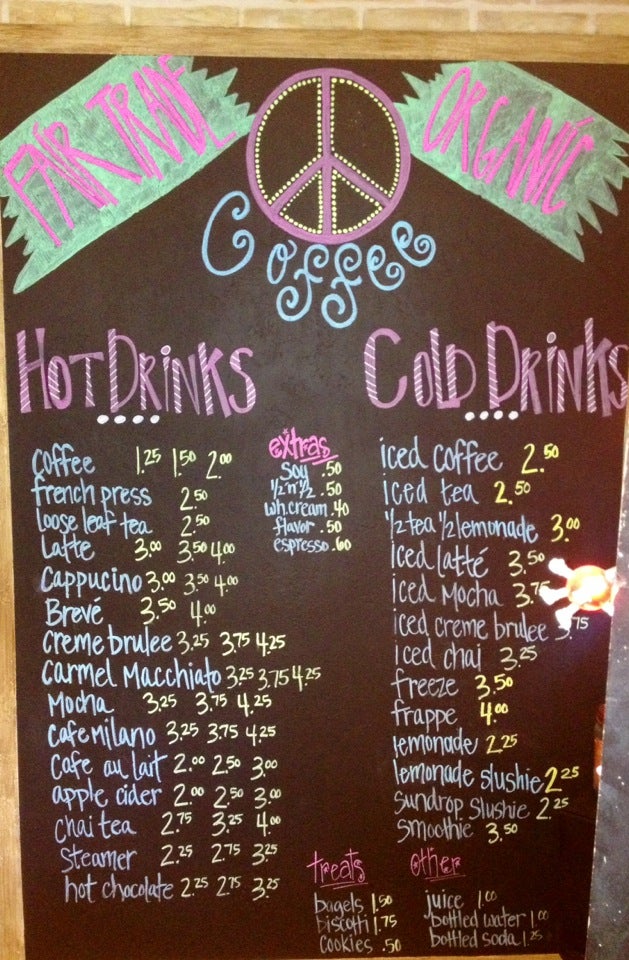 FAIR TRADE
ORGANIC
Coffee
HOT DRINKS
coffee 1.25 1.50 2.00
french press 2.50
loose leaf tea 2.50
Latte 3.00 3.50 4.00
Cappucino 3.00 3.50 4.00
Brevé 3.50 4.00
creme brulee 3.25 3.75 4.25
carmel Macchiato 3.25 3.75 4.25
Mocha 3.25 3.75 4.25
cafe milano 3.25 3.75 4.25
cafe au lait 2.00 2.50 3.00
apple cider 2.00 2.50 3.00
chai tea 2.75 3.25 4.00
steamer 2.25 2.75 3.25
hot chocolate 2.25 2.75 3.25
extras
soy .50
1/2 'n' 1/2 .50
wh.cream .40
flavor .50
espresso .60
COLD DRINKS
iced coffee 2.50
iced tea 2.50
1/2 tea 1/2 lemonade 3.00
iced latté 3.50
iced Mocha 3.75
iced creme brulee 3.75
iced chai 3.25
freeze 3.50
frappe 4.00
lemonade 2.25
lemonade slushie 2.25
sundrop slushie 2.25
smoothie 3.50
treats
bagels 1.50
biscotti 1.75
cookies .50
other
juice 1.00
bottled water 1.00
bottled soda 1.25